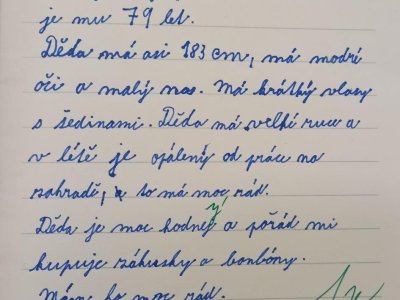 je mu 79 let.
Děda má asi 183 cm, má modré
oči a malý nos. Má krátký vlasy
s šedinami. Děda má velké ruce a
v létě je opálený od práce na
zahradě, a to má moc rád.
Děda je moc hodný a pořád mi
kupuje zákusky a bonbóny.
Mám ho moc rád.